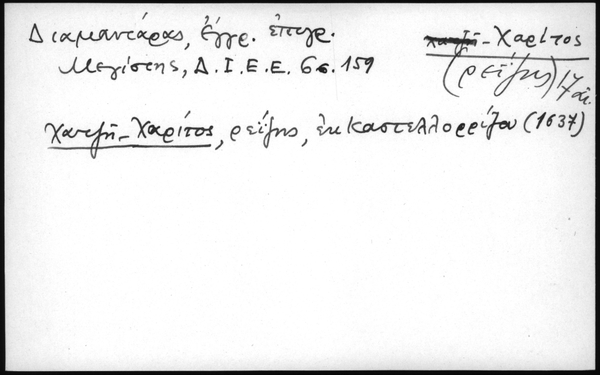 Διαμαντάρας, ἔγγρ. ἐπιγρ.
Μεγίστης, Δ.Ι.Ε.Ε. 6 σ. 159
Χατζῆ-Χαρίτος
(ρεΐζης) 17 αἰ.
Χατζῆ-Χαρίτος, ρεΐζης, ἐκ Καστελλορρίζου (1637)